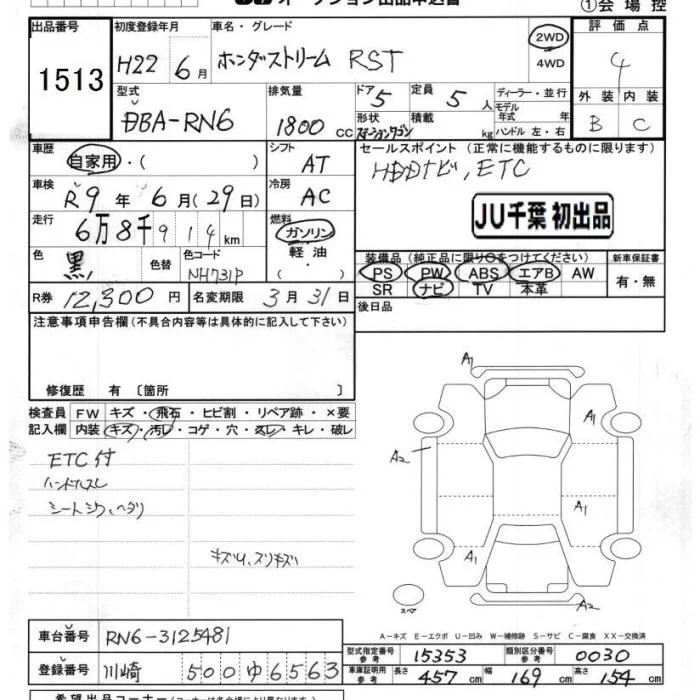 オークション出品申込書
①会場控
出品番号 初度登録年月 車名・グレード 評価点
1513 H22年6月 ホンダストリーム RST 2WD 4WD 4
型式 排気量 ドア 定員 ディーラー・並行 外装 内装
DBA-RN6 1800cc 5 5人 モデル年式 年式 B C
形状 ステーションワゴン 積載 kg ハンドル 左・右
車歴 自家用・( ) シフト AT セールスポイント (正常に機能するものに限ります)
HDDナビ, ETC
車検 R9年6月(29日) 冷房 AC
JU千葉 初出品
走行 6万8千914km 燃料 ガソリン 軽油
装備品(純正品に限り○をつけてください) 新車保証書
色 黒 色替 色コード NH731P
PS PW ABS エアB AW 有・無
SR ナビ TV 本革
R券 12,300円 名変期限 3月31日
後日品
注意事項申告欄(不具合内容等は具体的に記入して下さい)
修復歴 有 〔箇所 〕
検査員 FW キズ・飛石・ヒビ割・リペア跡・×要
記入欄 内装 キズ・汚レ・コゲ・穴・スレ・キレ・破レ
ETC付
ハンドルスレ
シートシワ、ヘタリ
キズU、スリキズ
A1
A1
A2
A2
A1
A1
A2
スペア
A-キズ E-エクボ U-凹み W-補修跡 S-サビ C-腐食 XX-交換済
車台番号 RN6-3125481
型式指定番号 参考 15353 類別区分番号 参考 0030
登録番号 川崎 500 ゆ 6563
車庫証明用 参考 長さ 457cm 幅 169cm 高さ 154cm
希望出品コーナー(コーナーは各会場により異なります)